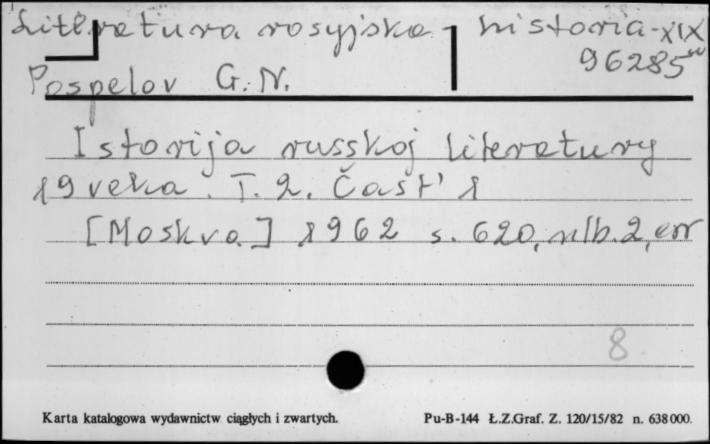 Literatura rosyjska - historia - XIX w
96285
Pospelov G. N.
Istorija russkoj literatury
19 veka. T. 2. Čast' 1
[Moskva] 1962 s. 620, nlb. 2, err
8
Karta katalogowa wydawnictw ciągłych i zwartych.
Pu-B-144 Ł.Z.Graf. Z. 120/15/82 n. 638 000.